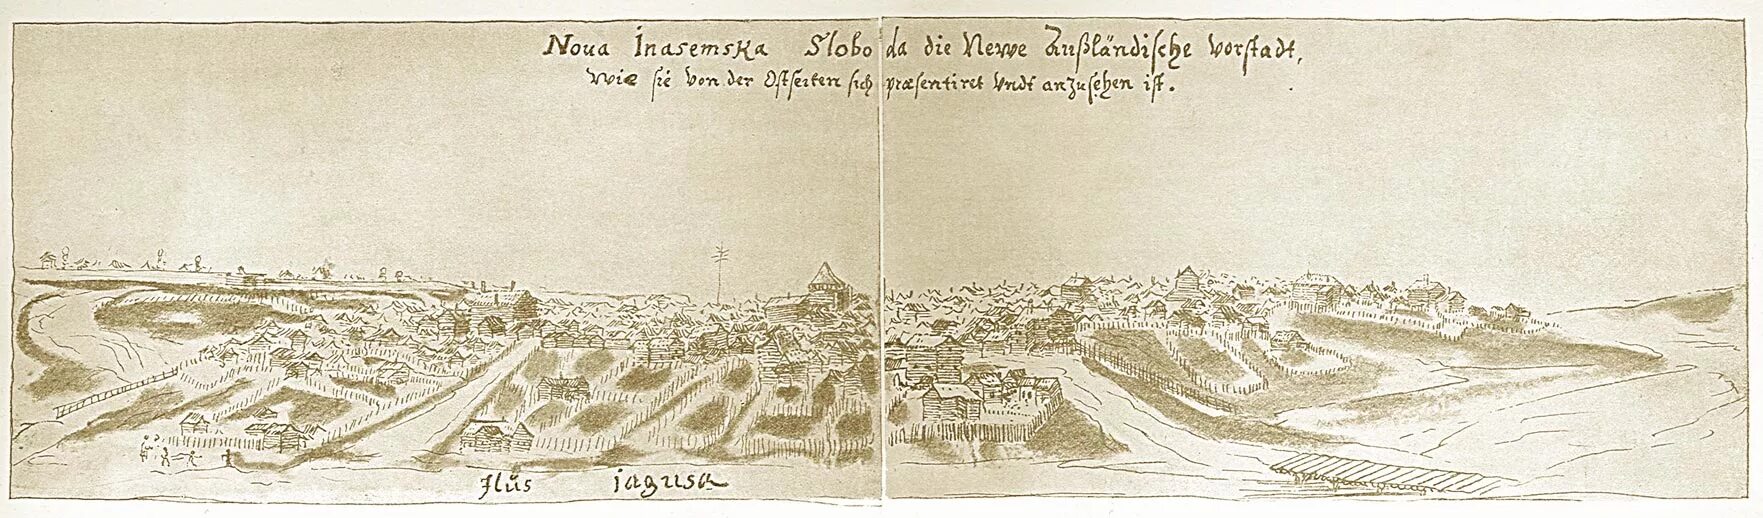 Noua Inasemska Sloboda die Newe Außländische vorstadt,
Wie sie von der Ostseiten sich præsentiret Vndt anzusehen ist.
Flűs jagusa